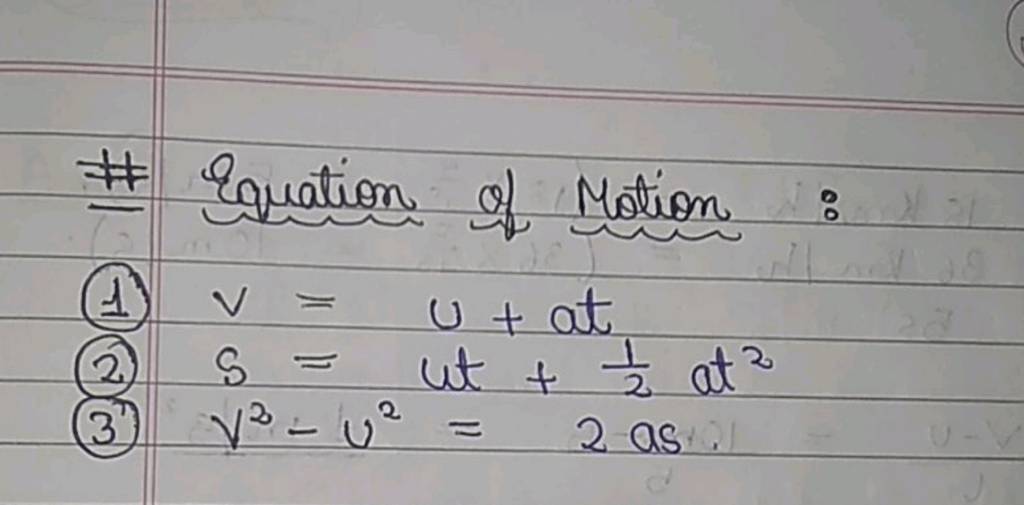 # Equation of Motion :
① v = u + at
② s = ut + 1/2 at²
③ v² - u² = 2as.